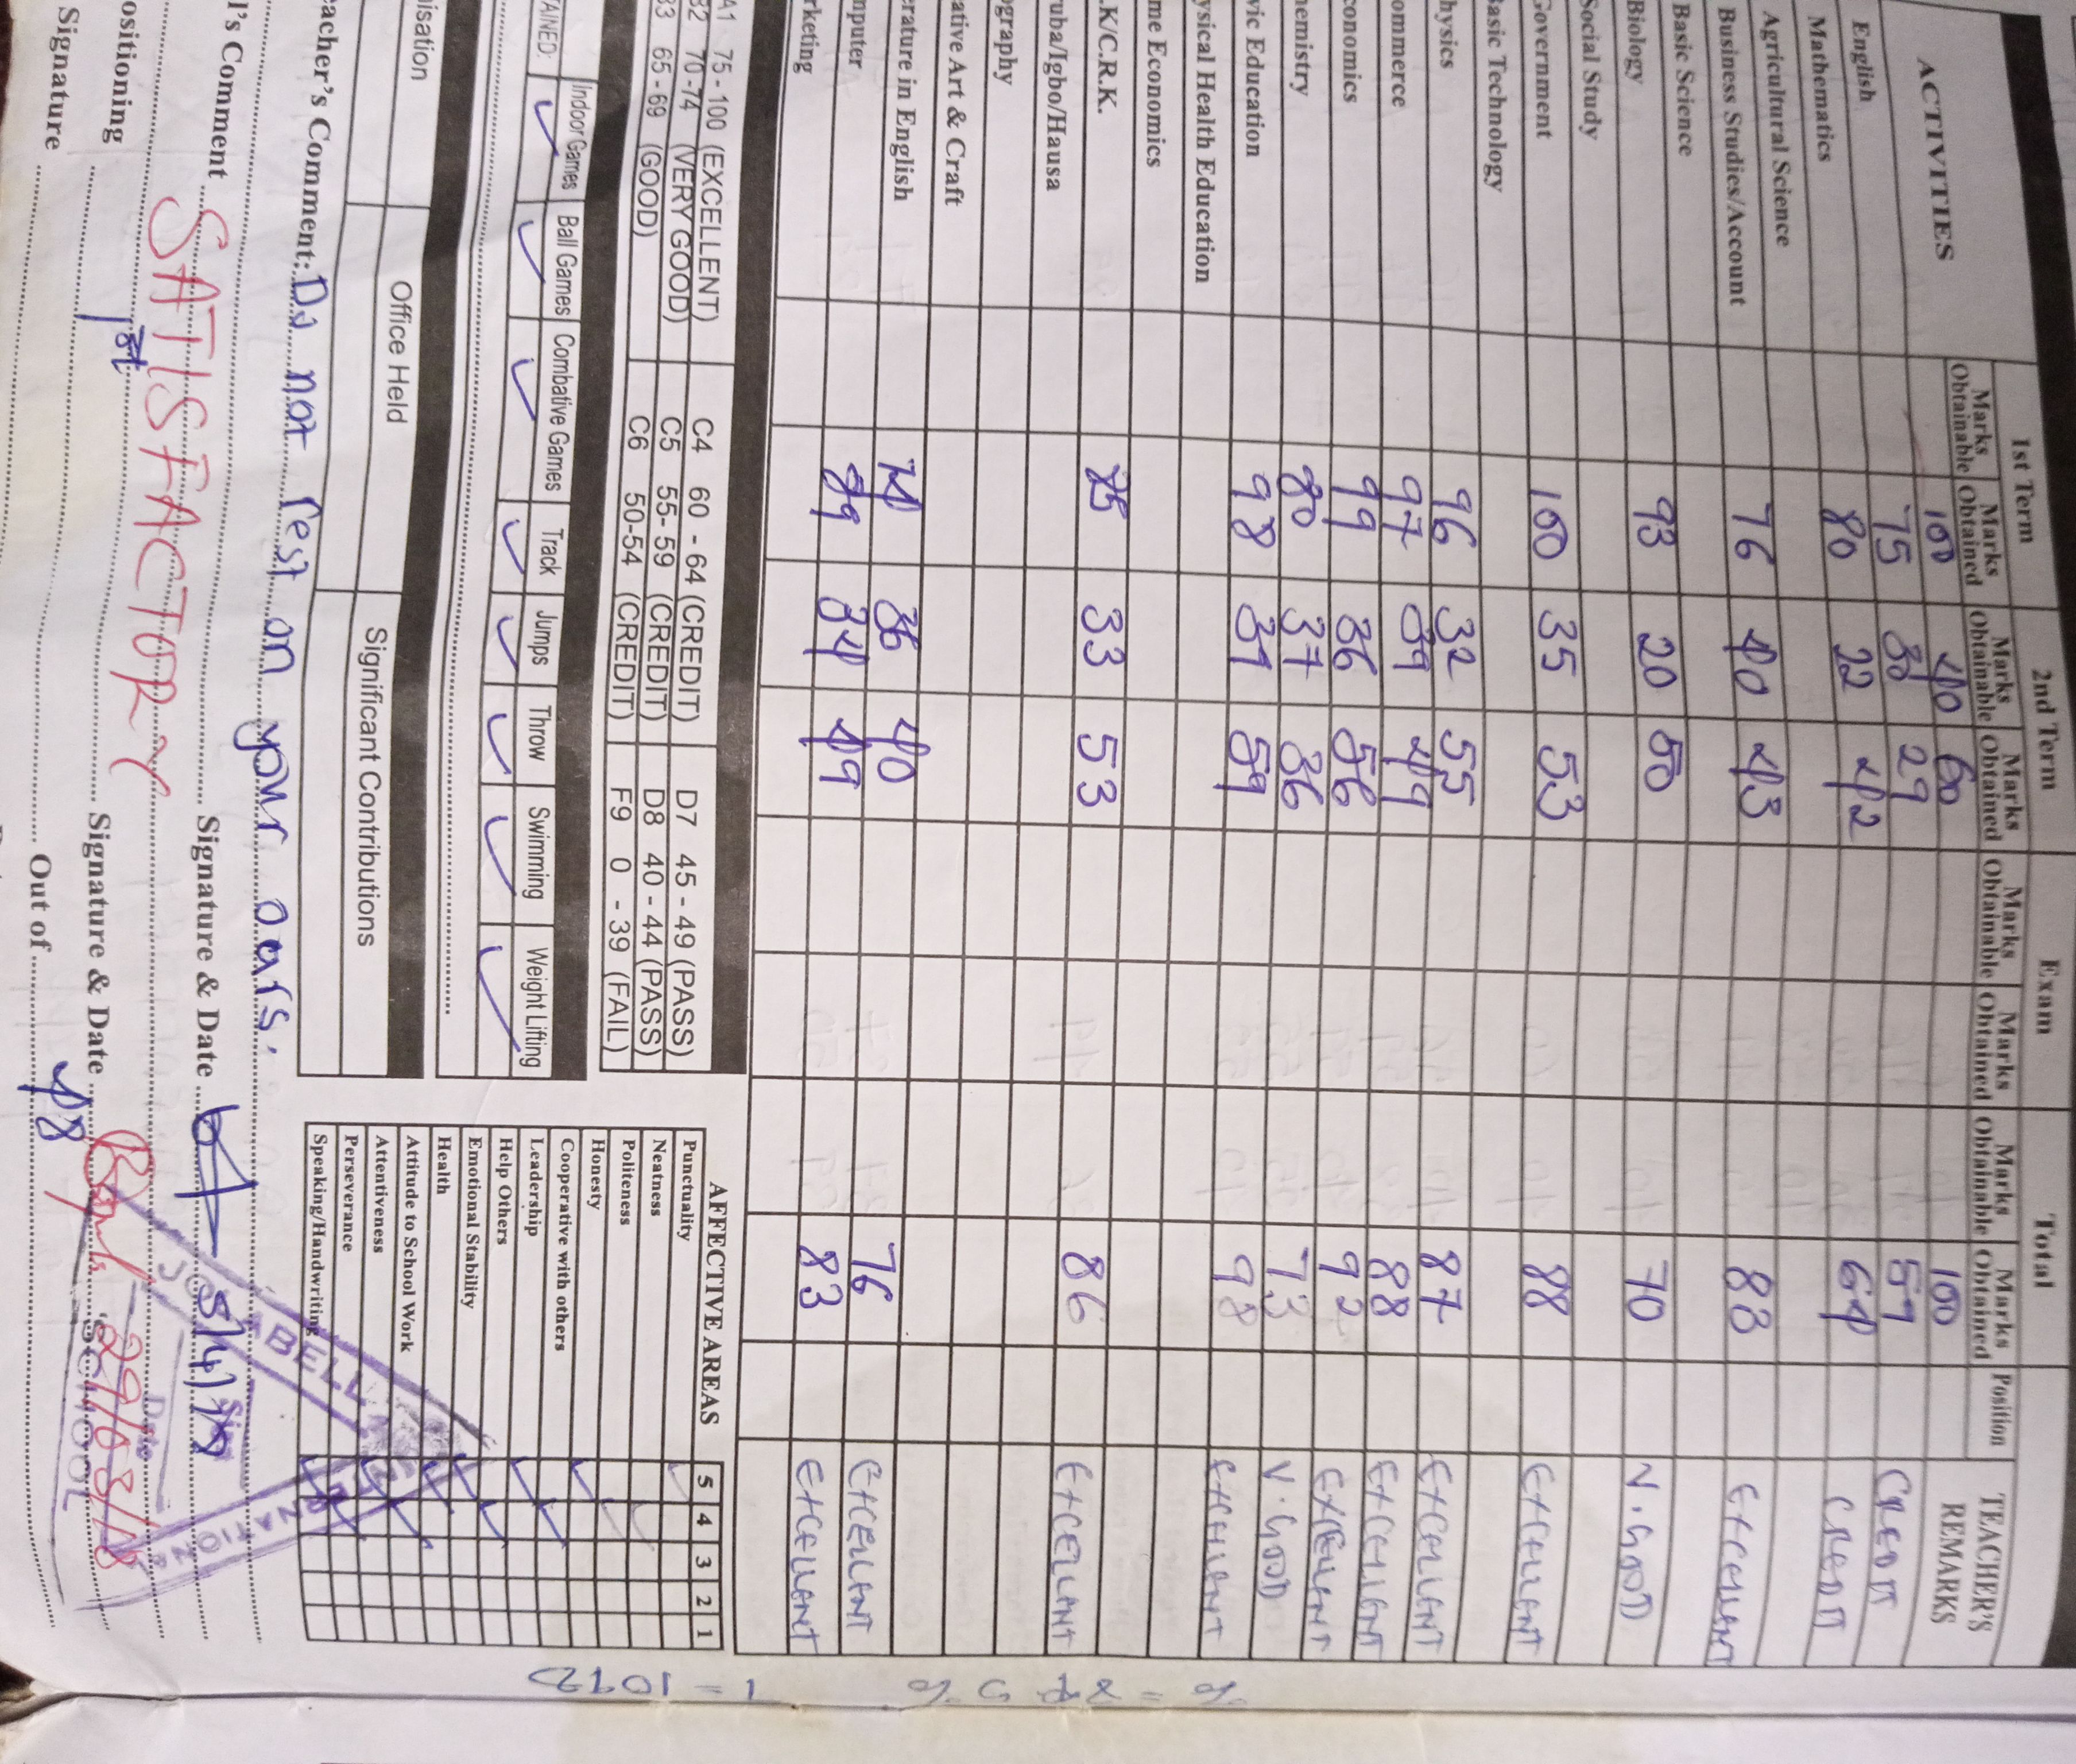 1st Term 2nd Term Exam Total
ACTIVITIES Marks Obtainable Marks Obtained Marks Obtainable Marks Obtained Marks Obtainable Marks Obtained Marks Obtainable Marks Obtained Position TEACHER'S REMARKS
100 40 60 100
English 75 30 29 59 CREDIT
Mathematics 80 22 42 64 CREDIT
Agricultural Science
Business Studies/Account 76 40 43 83 EXCELLENT
Basic Science
Biology 93 20 50 70 V.GOOD
Social Study
Government 100 35 53 88 EXCELLENT
asic Technology
hysics 96 32 55 87 EXCELLENT
ommerce 97 39 49 88 EXCELLENT
conomics 99 36 56 92 EXCELLENT
hemistry 80 37 36 73 V.GOOD
vic Education 98 39 59 98 EXCELLENT
ysical Health Education
me Economics
.K/C.R.K. 85 33 53 86 EXCELLENT
ruba/Igbo/Hausa
ography
ative Art & Craft
erature in English 74 36 40 76 EXCELLENT
mputer 89 34 49 83 EXCELLENT
rketing
A1 75 - 100 (EXCELLENT) C4 60 - 64 (CREDIT) D7 45 - 49 (PASS)
B2 70 -74 (VERY GOOD) C5 55- 59 (CREDIT) D8 40 - 44 (PASS)
B3 65 - 69 (GOOD) C6 50-54 (CREDIT) F9 0 - 39 (FAIL)
Indoor Games Ball Games Combative Games Track Jumps Throw Swimming Weight Lifting
TAINED:
nisation Office Held Significant Contributions
AFFECTIVE AREAS 5 4 3 2 1
Punctuality
Neatness
Politeness
Honesty
Cooperative with others
Leadership
Help Others
Emotional Stability
Health
Attitude to School Work
Attentiveness
Perseverance
Speaking/Handwriting
eacher's Comment: Do not rest on your oars.
l's Comment SATISFACTORY Signature & Date
ositioning 1st Signature & Date 29/03/18
Signature Out of 48